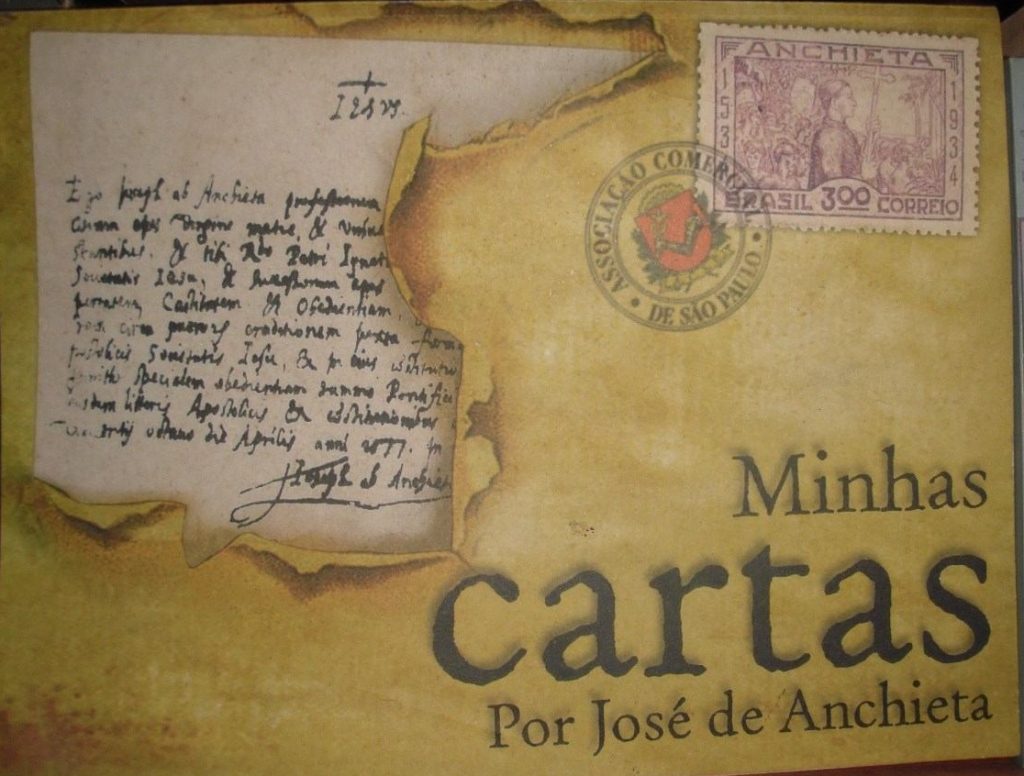 Iesus.
Ego Joseph ab Anchieta professionem
matris, &
& tibi Rdo Patri Ignat
Societatis Iesu, &
Castitatem & Obedientiam,
Societatis Iesu, &
specialem obedientiam summo Pontifici
litteris Apostolicis &
octavo die Aprilis anni 1577. In
Joseph ab Anchieta
ANCHIETA
1534
1934
BRASIL 300 CORREIO
ASSOCIAÇÃO COMERCIAL
DE SÃO PAULO
Minhas
cartas
Por José de Anchieta